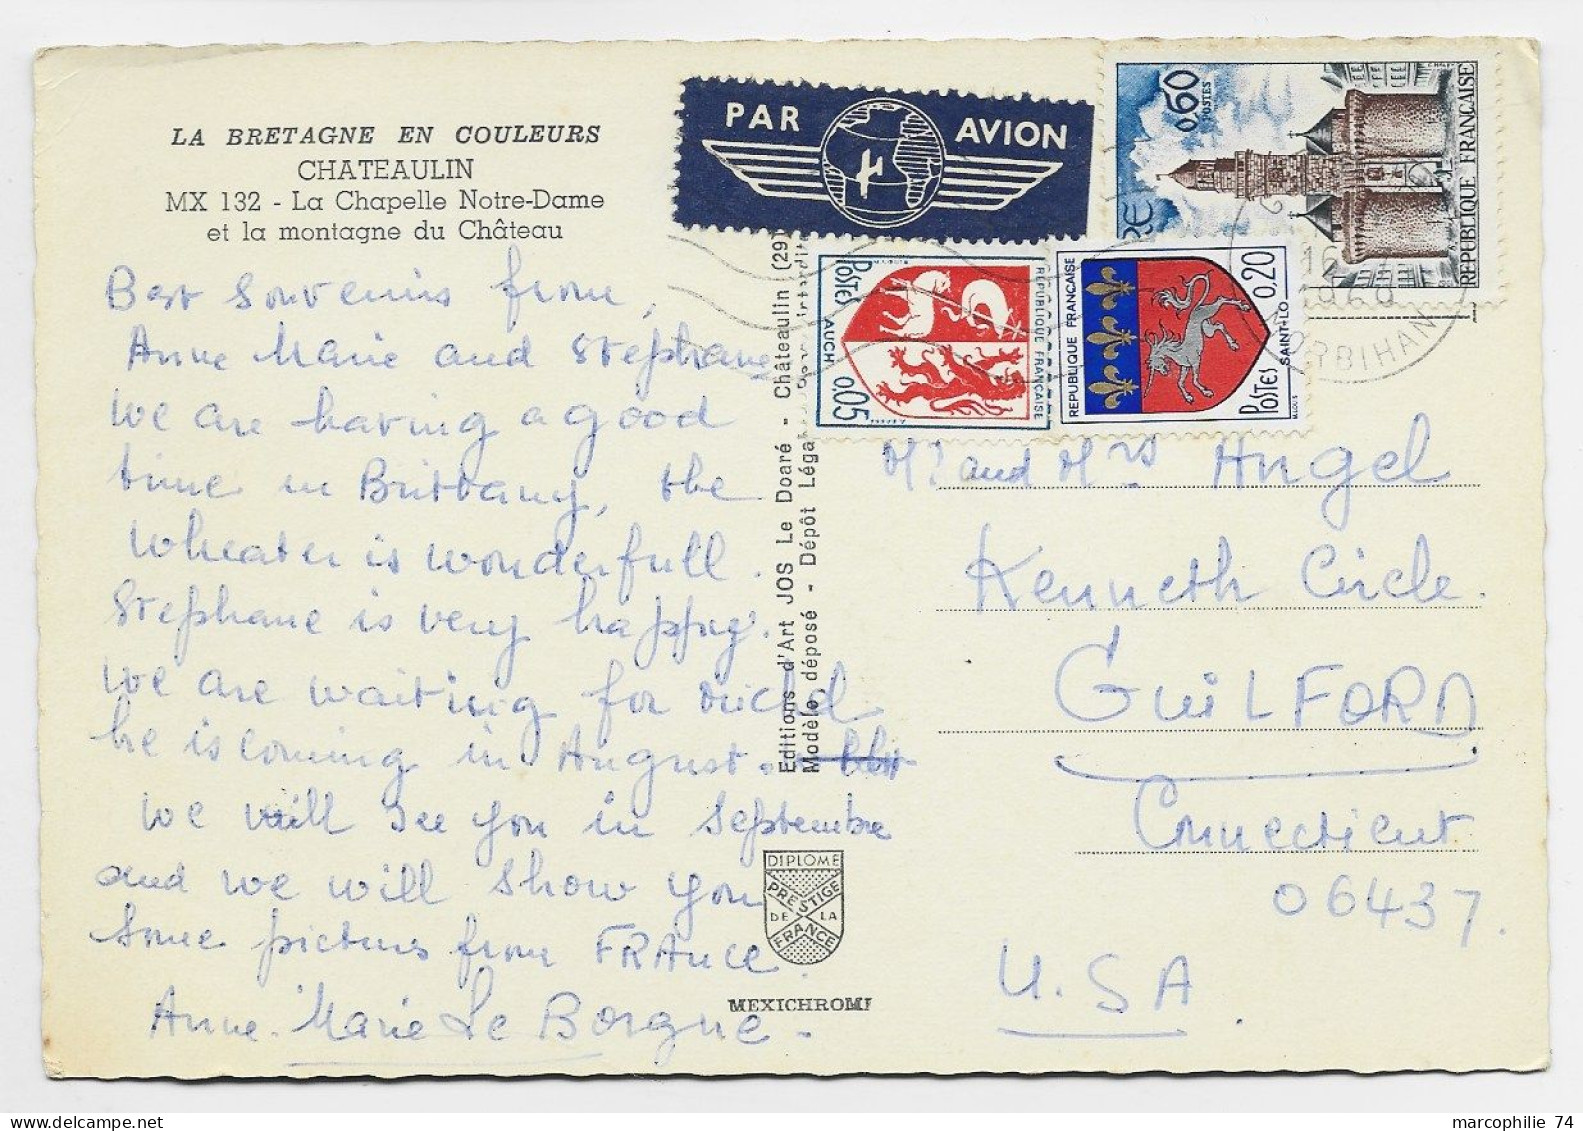 LA BRETAGNE EN COULEURS
CHATEAULIN
MX 132 - La Chapelle Notre-Dame
et la montagne du Château
Best Souvenirs from,
Anne Marie and Stephane
We are having a good
time in Brittany, the
Wheater is wonderfull.
Stephane is very happy.
We are waiting for
he is coming in August.
We will see you in Septembre
and we will show you
Some pictures from FRAnce.
Anne-Marie Le Borgne-
Editions d'Art JOS Le Doaré - Châteaulin (29
Modèle déposé - Dépôt Légal
DIPLOME
PRESTIGE
DE LA
FRANCE
MEXICHROME
PAR AVION
0,60
POSTES
REPUBLIQUE FRANÇAISE
POSTES
AUCH
0,05
REPUBLIQUE FRANÇAISE
REPUBLIQUE FRANÇAISE
0,20
SAINT-LO
POSTES
16
1968
MORBIHAN
Mr and Mrs Angel
Kenneth Circle.
GuiLFORD
Connecticut
06437.
U.S A.
marcophilie 74